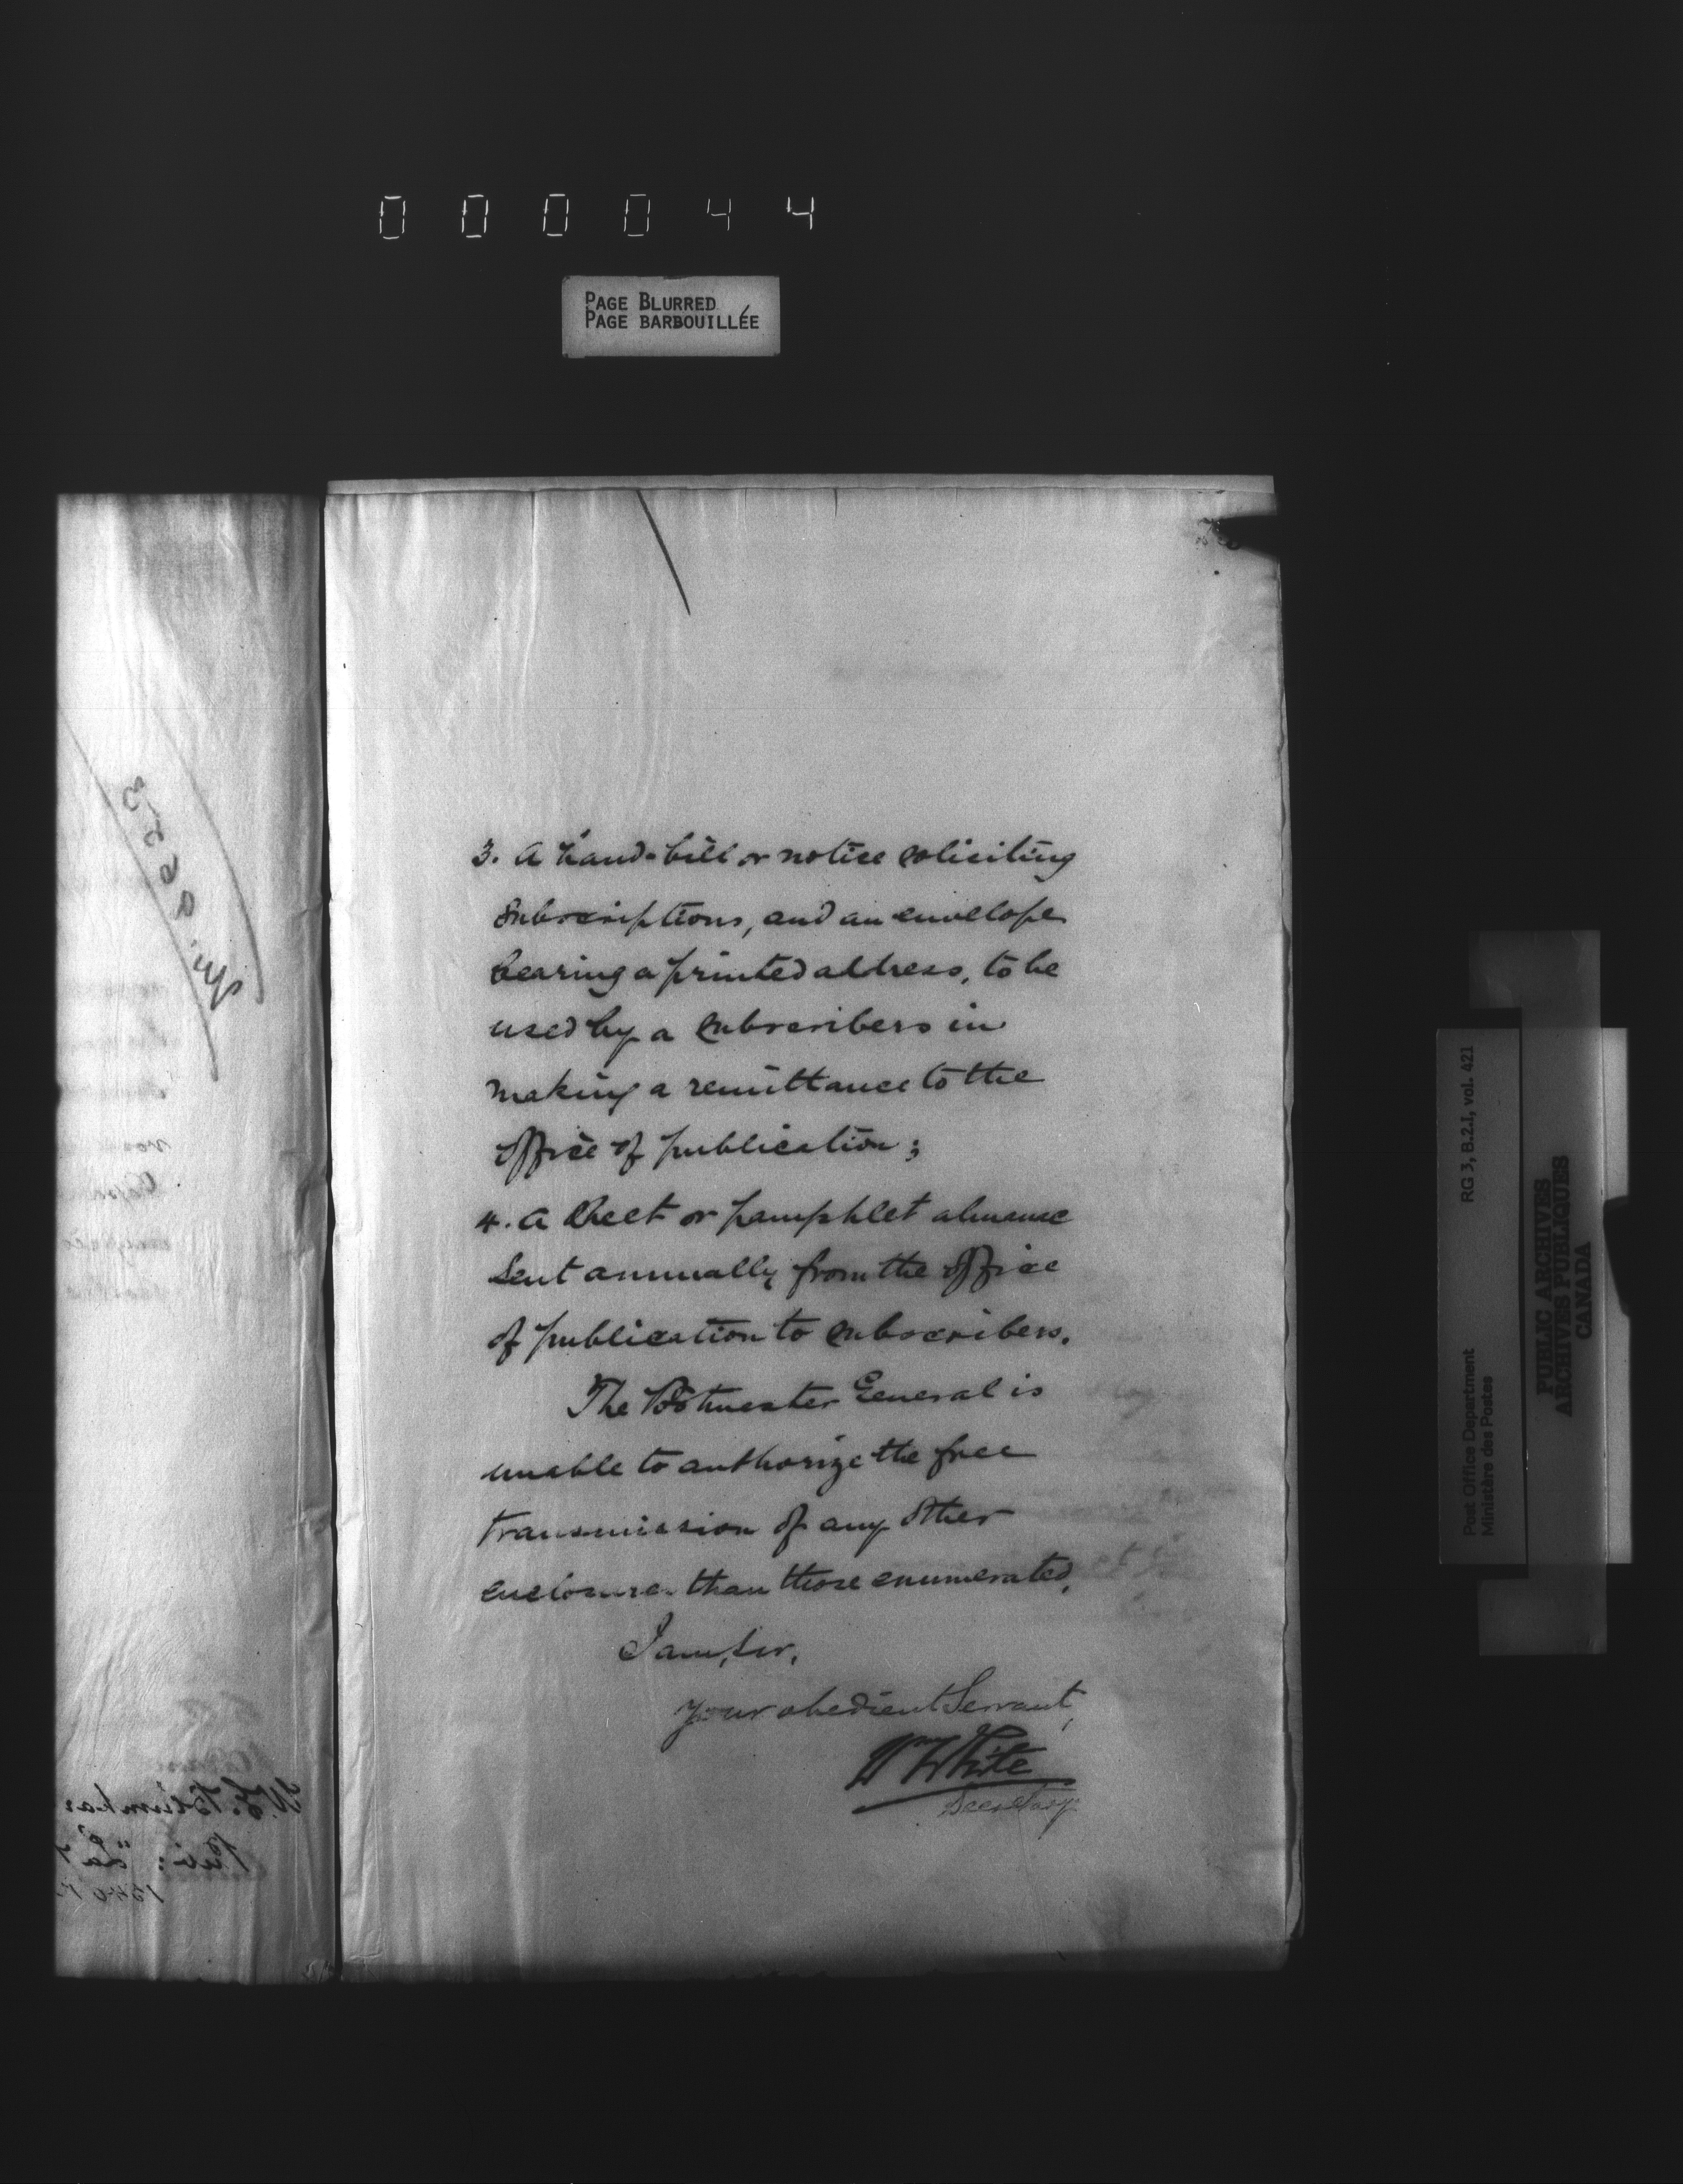 000044
PAGE BLURRED
PAGE BARBOUILLÉE
3. A hand-bill or notice soliciting
subscriptions, and an envelope
bearing a printed address, to be
used by a subscribers in
making a remittance to the
office of publication;
4. A sheet or pamphlet almanac
sent annually from the office
of publication to subscribers.
The Postmaster General is
unable to authorize the free
transmission of any other
enclosure than those enumerated.
I am, Sir,
Your obedient Servant,
Wm White
Secretary
RG 3, B.2.I, vol. 421
Post Office Department
Ministère des Postes
PUBLIC ARCHIVES
ARCHIVES PUBLIQUES
CANADA